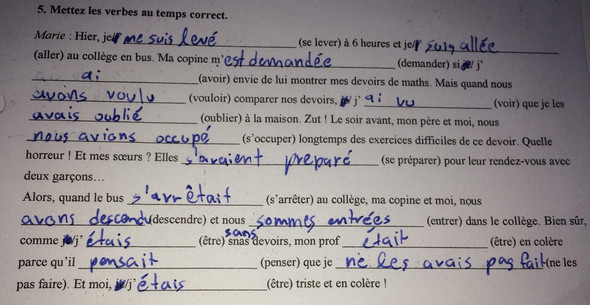 5. Mettez les verbes au temps correct.
Marie : Hier, je/j' me suis levé (se lever) à 6 heures et je/j' suis allée
(aller) au collège en bus. Ma copine m'est demandée (demander) si je/ j'
ai (avoir) envie de lui montrer mes devoirs de maths. Mais quand nous
avons voulu (vouloir) comparer nos devoirs, je/ j' ai vu (voir) que je les
avais oublié (oublier) à la maison. Zut ! Le soir avant, mon père et moi, nous
nous avions occupé (s'occuper) longtemps des exercices difficiles de ce devoir. Quelle
horreur ! Et mes sœurs ? Elles s'avaient preparé (se préparer) pour leur rendez-vous avec
deux garçons…
Alors, quand le bus s'arrêtait (s'arrêter) au collège, ma copine et moi, nous
avons descendu (descendre) et nous sommes entrées (entrer) dans le collège. Bien sûr,
comme je/j' étais (être) snas sans devoirs, mon prof était (être) en colère
parce qu'il pensait (penser) que je ne les avais pas fait (ne les
pas faire). Et moi, je/j' étais (être) triste et en colère !